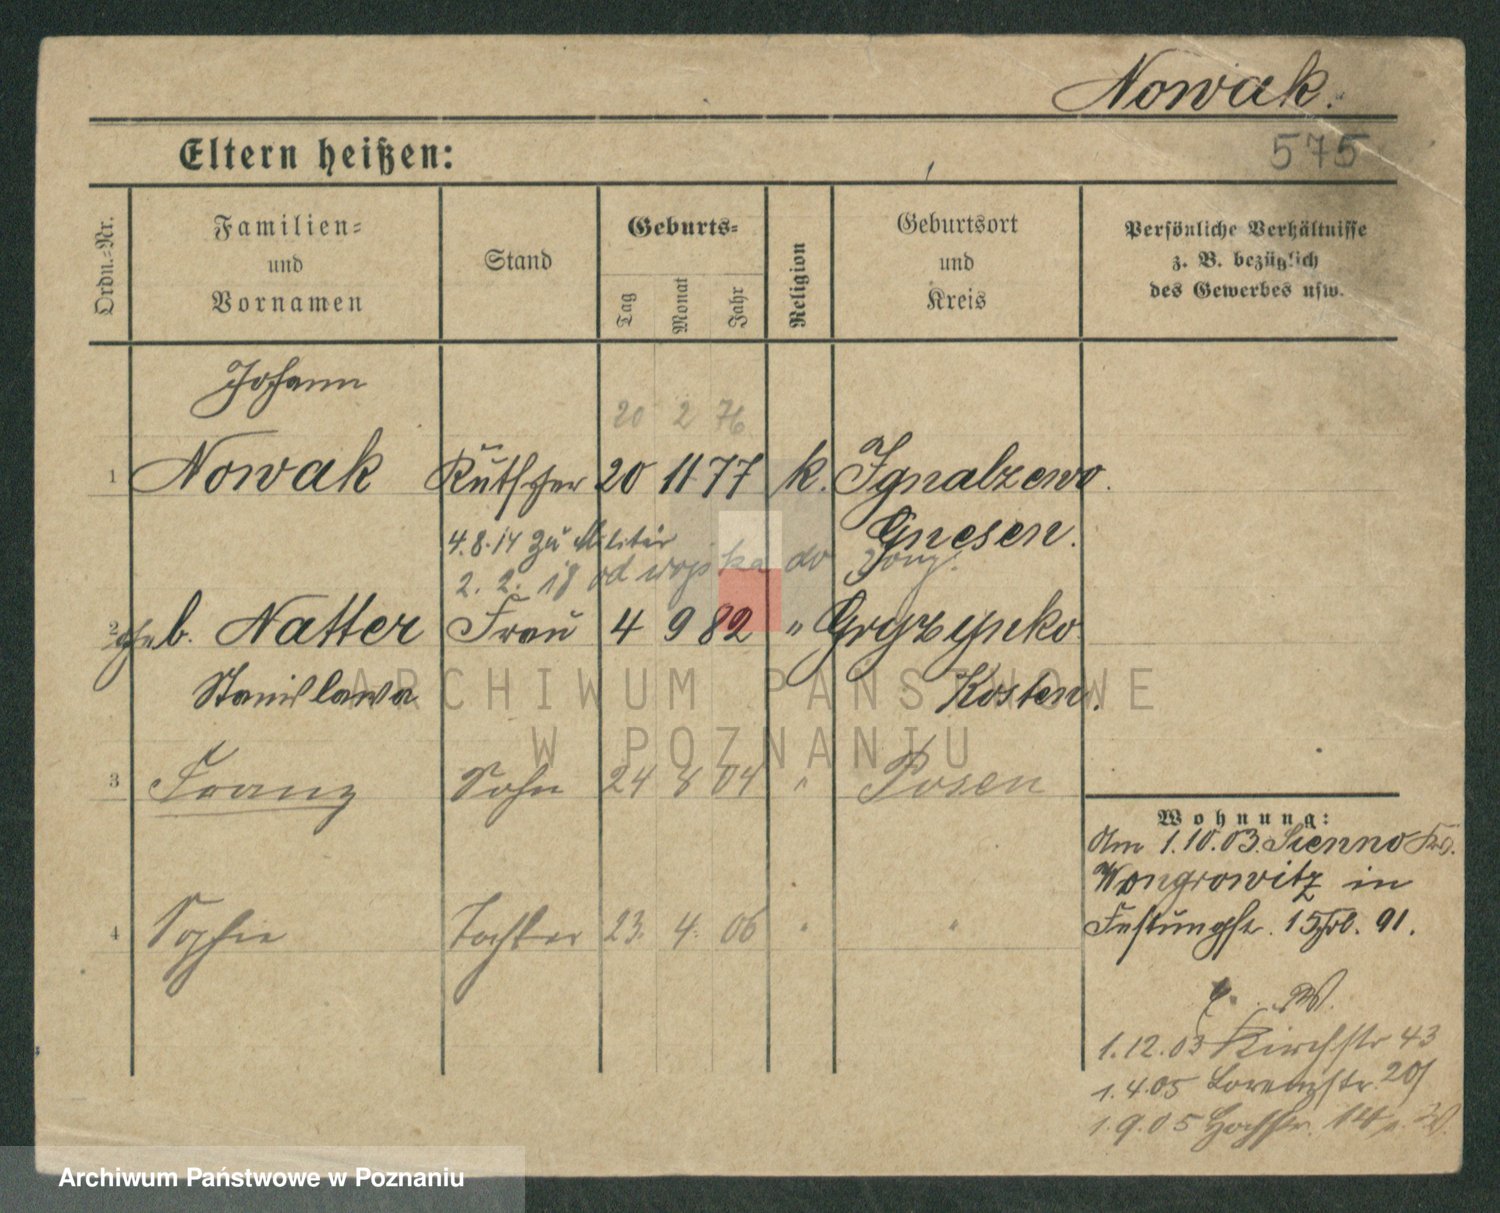 Nowak.
575
Eltern heißen:
Ordn.-Nr.
Familien- und Vornamen
Stand
Geburts-
Tag Monat Jahr
Religion
Geburtsort und Kreis
Persönliche Verhältnisse z. B. bezüglich des Gewerbes usw.
Johann
20 2 76
1 Nowak Kutscher 20 11 77 k. Ignalzewo
Gnesen.
4.8.14 zu Militär
2. 2. 18 od wojska do
2 geb. Natter Frau 4 9 82 " Gryzynko
Stanislawa Kosten.
3 Franz Sohn 24 8 04 " Posen
4 Sophie Tochter 23. 4. 06 " "
Wohnung:
Am 1.10.03. Sienno Kr.
Wongrowitz in
Festungstr. 15 91.
1.12.03 Kirchstr 43
1.4.05 Lorenzstr. 20
1.9.05 Hochstr. 14
ARCHIWUM PAŃSTWOWE
W POZNANIU
Archiwum Państwowe w Poznaniu